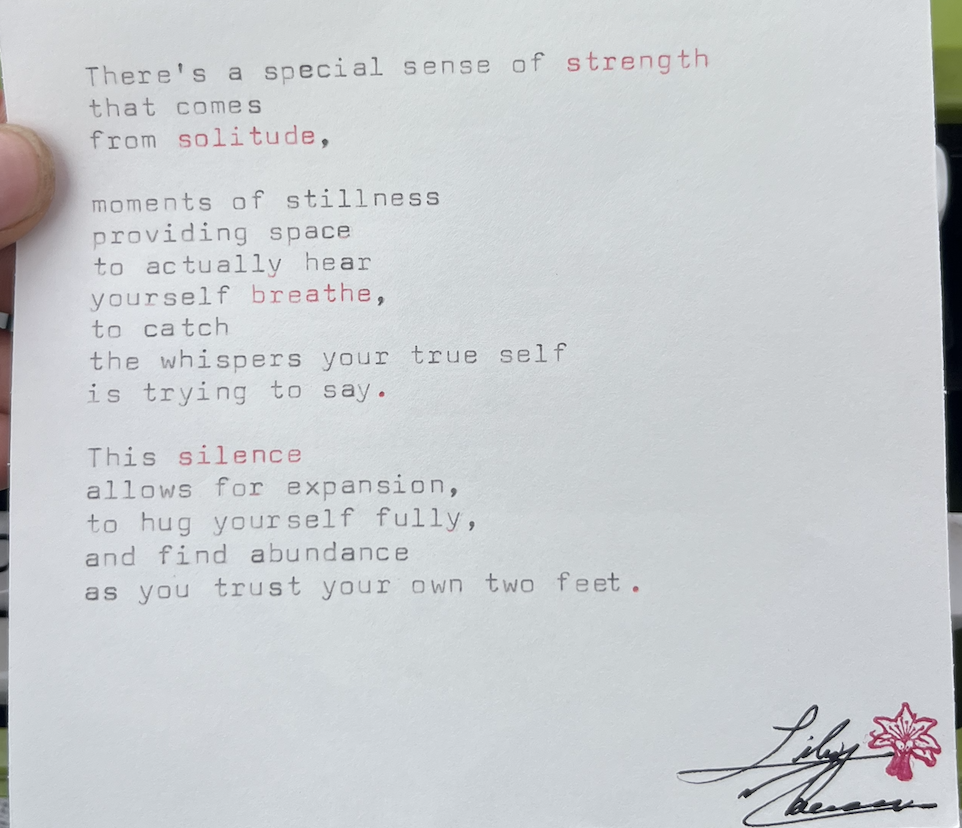 There's a special sense of strength
that comes
from solitude,
moments of stillness
providing space
to actually hear
yourself breathe,
to catch
the whispers your true self
is trying to say.
This silence
allows for expansion,
to hug yourself fully,
and find abundance
as you trust your own two feet.
Lily